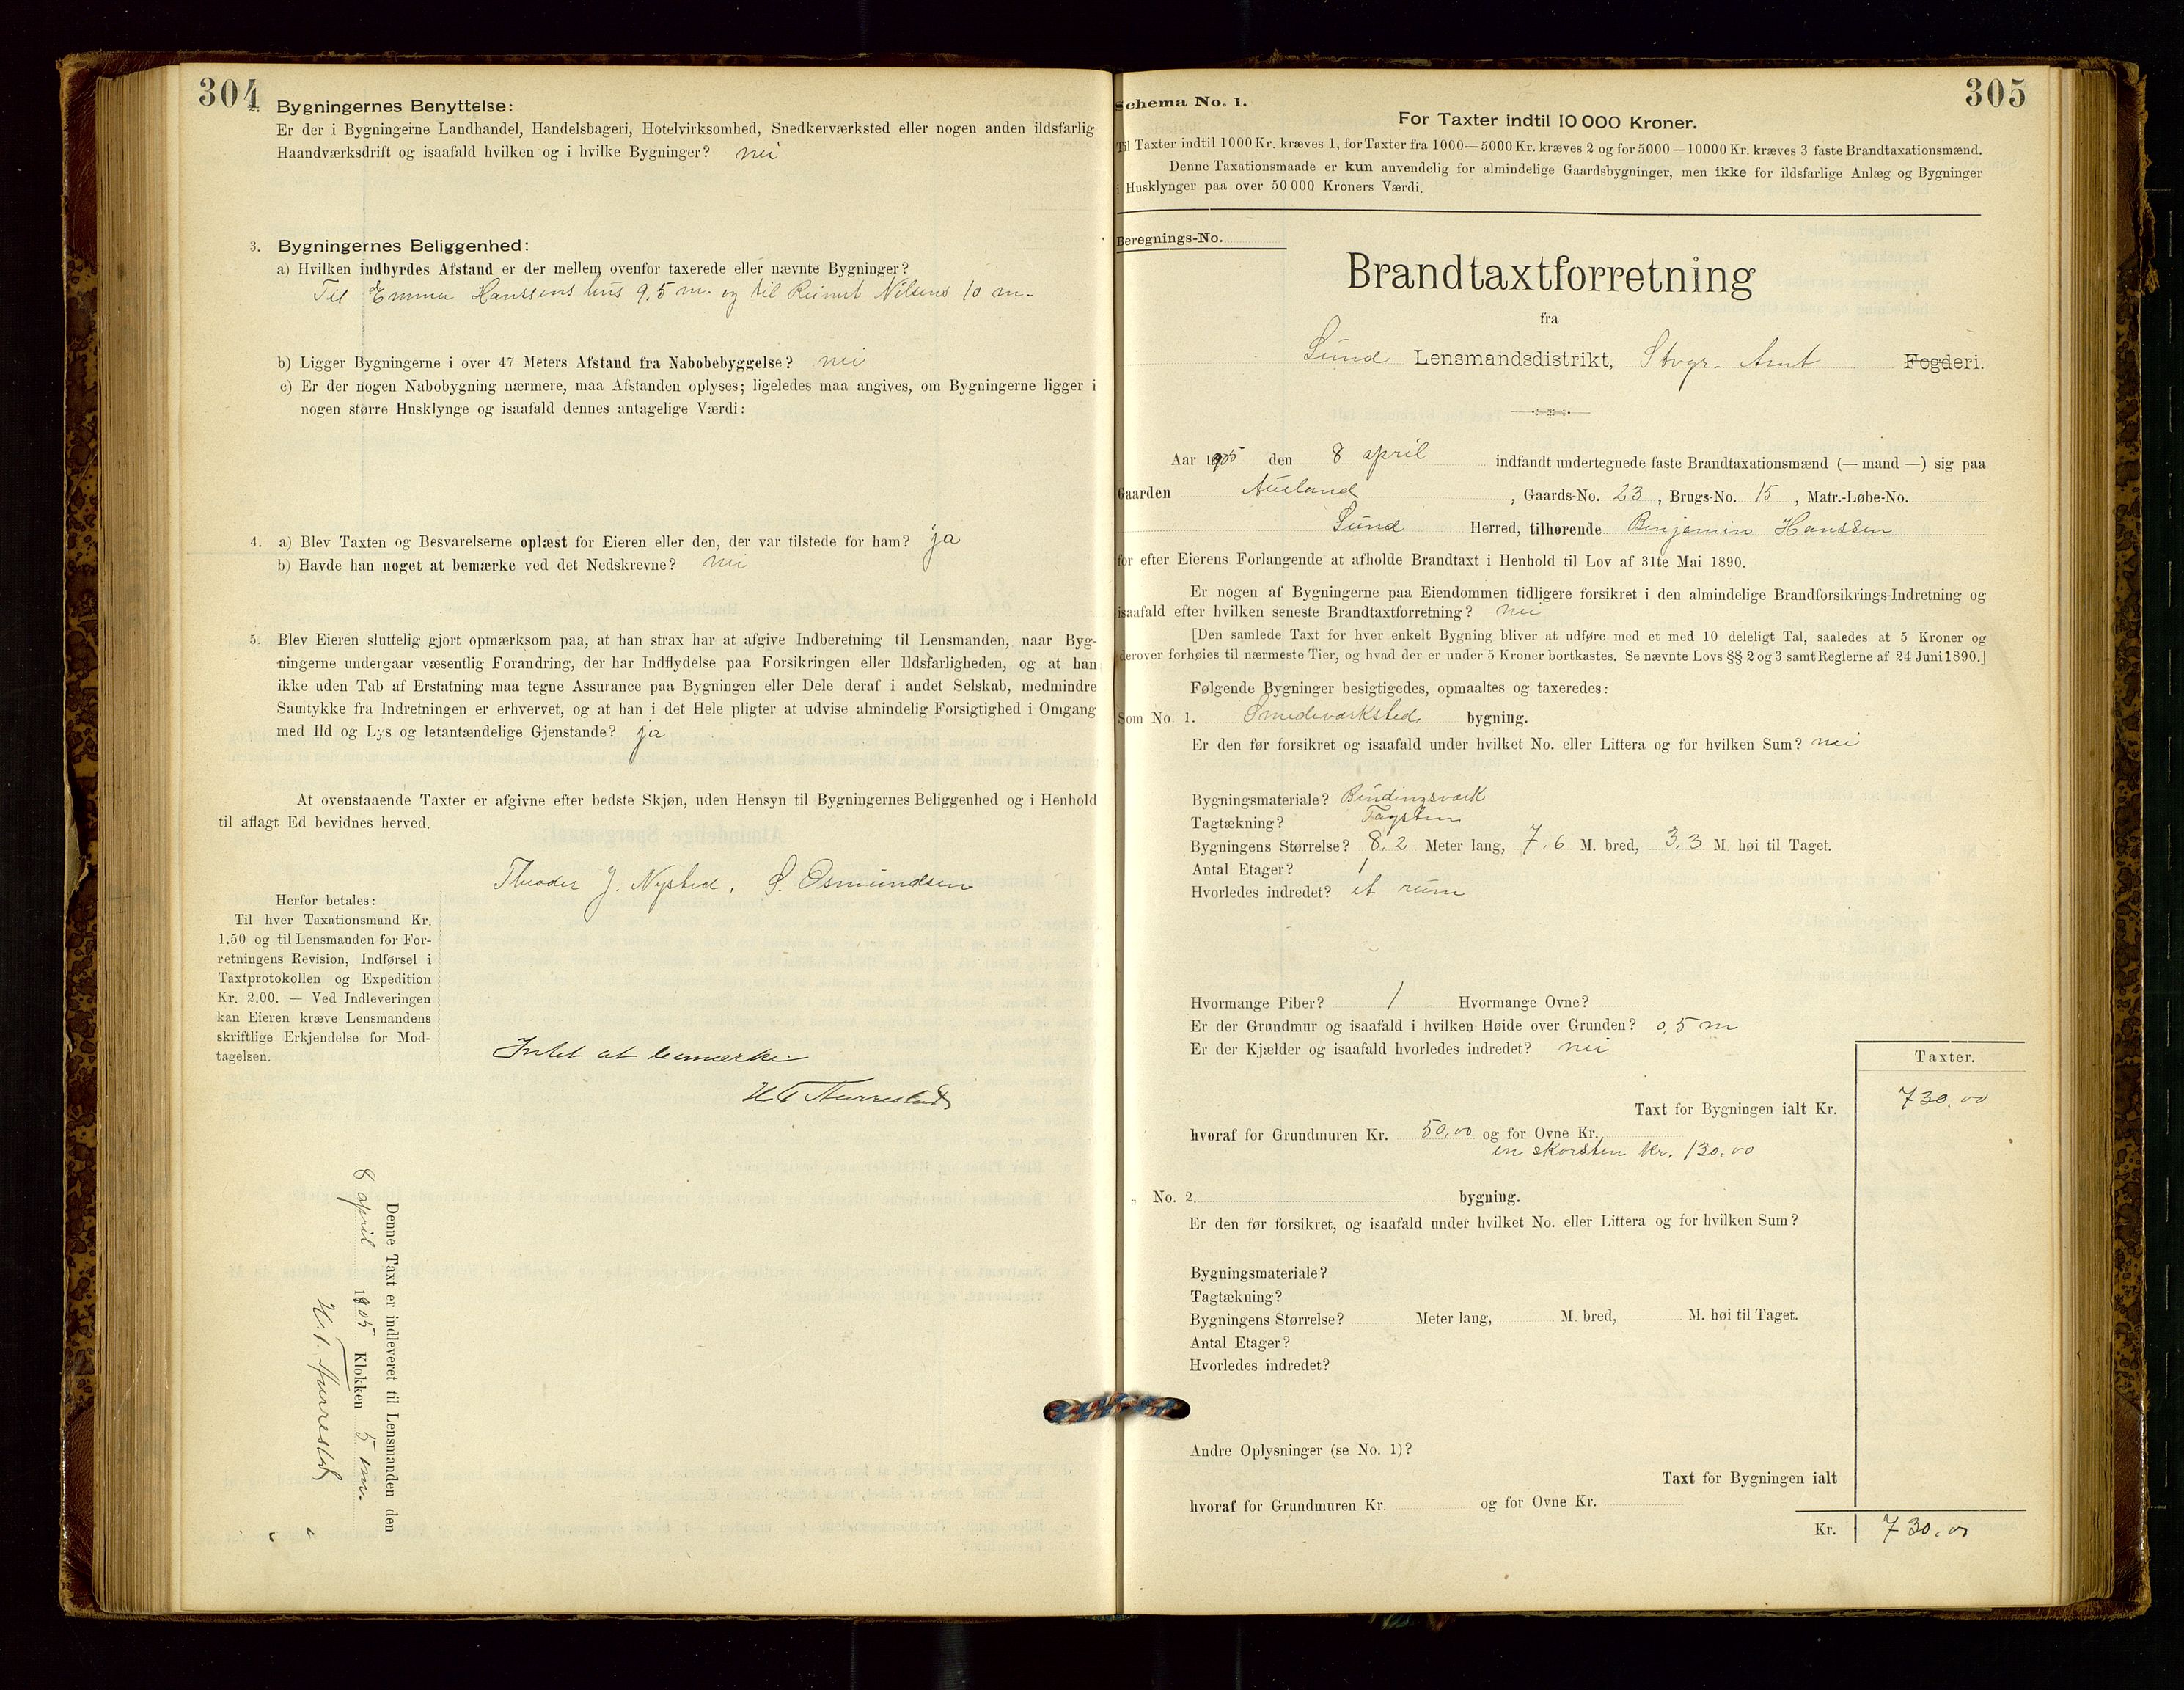 304
2. Bygningernes Benyttelse:
Er der i Bygningerne Landhandel, Handelsbageri, Hotelvirksomhed, Snedkerværksted eller nogen anden ildsfarlig
Haandværksdrift og isaafald hvilken og i hvilke Bygninger? nei
3. Bygningernes Beliggenhed:
a) Hvilken indbyrdes Afstand er der mellem ovenfor taxerede eller nævnte Bygninger?
Til Emma Hanssens hus 9,5 m. og til Reinert Nilsens 10 m.
b) Ligger Bygningerne i over 47 Meters Afstand fra Nabobebyggelse? nei
c) Er der nogen Nabobygning nærmere, maa Afstanden oplyses; ligeledes maa angives, om Bygningerne ligger i
nogen større Husklynge og isaafald dennes antagelige Værdi:
4. a) Blev Taxten og Besvarelserne oplæst for Eieren eller den, der var tilstede for ham? ja
b) Havde han noget at bemærke ved det Nedskrevne? nei
5. Blev Eieren sluttelig gjort opmærksom paa, at han strax har at afgive Indberetning til Lensmanden, naar Byg-
ningerne undergaar væsentlig Forandring, der har Indflydelse paa Forsikringen eller Ildsfarligheden, og at han
ikke uden Tab af Erstatning maa tegne Assurance paa Bygningen eller Dele deraf i andet Selskab, medmindre
Samtykke fra Indretningen er erhvervet, og at han i det Hele pligter at udvise almindelig Forsigtighed i Omgang
med Ild og Lys og letantændelige Gjenstande? ja
At ovenstaaende Taxter er afgivne efter bedste Skjøn, uden Hensyn til Bygningernes Beliggenhed og i Henhold
til aflagt Ed bevidnes herved.
Theodor J. Nysted. S. Osmundsen
Herfor betales:
Til hver Taxationsmand Kr.
1.50 og til Lensmanden for For-
retningens Revision, Indførsel i
Taxtprotokollen og Expedition
Kr. 2.00. — Ved Indleveringen
kan Eieren kræve Lensmandens
skriftlige Erkjendelse for Mod-
tagelsen.
Intet at bemærke
Denne Taxt er indleveret til Lensmanden den
8 april 1905 Klokken 5 em.
305
Schema No. 1.
For Taxter indtil 10 000 Kroner.
Til Taxter indtil 1000 Kr. kræves 1, for Taxter fra 1000—5000 Kr. kræves 2 og for 5000—10000 Kr. kræves 3 faste Brandtaxationsmænd.
Denne Taxationsmaade er kun anvendelig for almindelige Gaardsbygninger, men ikke for ildsfarlige Anlæg og Bygninger
i Husklynger paa over 50 000 Kroners Værdi.
Beregnings-No.
Brandtaxtforretning
fra
Lund Lensmandsdistrikt, Stvgr. Amt Fogderi.
Aar 1905 den 8 april indfandt undertegnede faste Brandtaxationsmænd (— mand —) sig paa
Gaarden Aueland, Gaards-No. 23, Brugs-No. 15, Matr.-Løbe-No.
Lund Herred, tilhørende Benjamin Hanssen
for efter Eierens Forlangende at afholde Brandtaxt i Henhold til Lov af 31te Mai 1890.
Er nogen af Bygningerne paa Eiendommen tidligere forsikret i den almindelige Brandforsikrings-Indretning og
isaafald efter hvilken seneste Brandtaxtforretning? nei
[Den samlede Taxt for hver enkelt Bygning bliver at udføre med et med 10 deleligt Tal, saaledes at 5 Kroner og
derover forhøies til nærmeste Tier, og hvad der er under 5 Kroner bortkastes. Se nævnte Lovs §§ 2 og 3 samt Reglerne af 24 Juni 1890.]
Følgende Bygninger besigtigedes, opmaaltes og taxeredes:
Som No. 1. Smedeværksted bygning.
Er den før forsikret og isaafald under hvilket No. eller Littera og for hvilken Sum? nei
Bygningsmateriale? Bindingsværk
Tagtækning? Tagsten
Bygningens Størrelse? 8,2 Meter lang, 7,6 M. bred, 3,3 M høi til Taget.
Antal Etager? 1
Hvorledes indredet? et rum
Hvormange Piber? 1 Hvormange Ovne?
Er der Grundmur og isaafald i hvilken Høide over Grunden? 0,5 m
Er der Kjælder og isaafald hvorledes indredet? nei
Taxter.
Taxt for Bygningen ialt Kr. 730,00
hvoraf for Grundmuren Kr. 50,00 og for Ovne Kr.
en skorsten kr. 130,00
„ No. 2. bygning.
Er den før forsikret, og isaafald under hvilket No. eller Littera og for hvilken Sum?
Bygningsmateriale?
Tagtækning?
Bygningens Størrelse? Meter lang, M. bred, M. høi til Taget.
Antal Etager?
Hvorledes indredet?
Andre Oplysninger (se No. 1)?
Taxt for Bygningen ialt
hvoraf for Grundmuren Kr. og for Ovne Kr.
Kr. 730,00